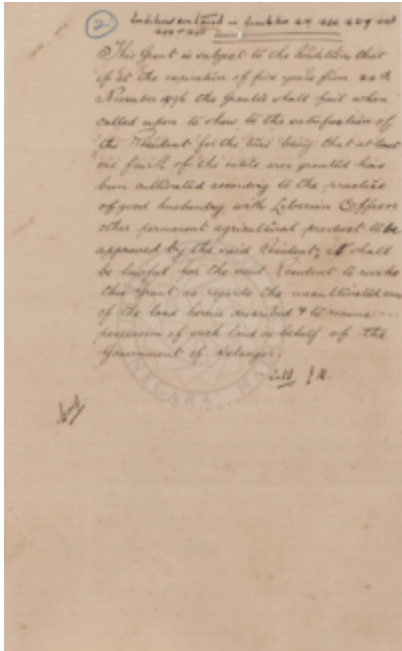 2
Conditions contained in Grants Nos
This Grant is subject to the condition that
if at the expiration of five years from 20th
November 1896 the Grantee shall fail when
called upon to show to the satisfaction of
the Resident for the time being that at least
one fourth of the entire area granted has
been cultivated according to the practice
of good husbandry with Liberian Coffee or
other permanent agricultural product to be
approved by the said Resident, it shall
be lawful for the said Resident to revoke
this Grant as regards the uncultivated area
of the land herein described & to resume
possession of such land on behalf of the
Government of Selangor.
NEGARA